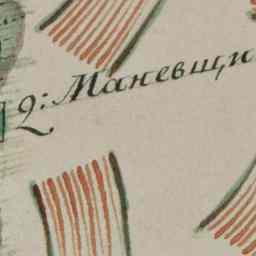 2: Маневщи